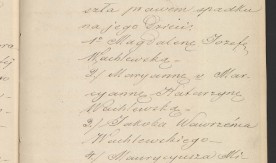 szła prawem spadku
na jego Dzieci:
1º Magdalenę Józefę
Wachlewską
2/ Maryannę v Mar-
syannę Katarzynę
Wachlewską
3/ Jakóba Wawrzeńca
Wachlewskiego
4/ Maurycyusza Mi-